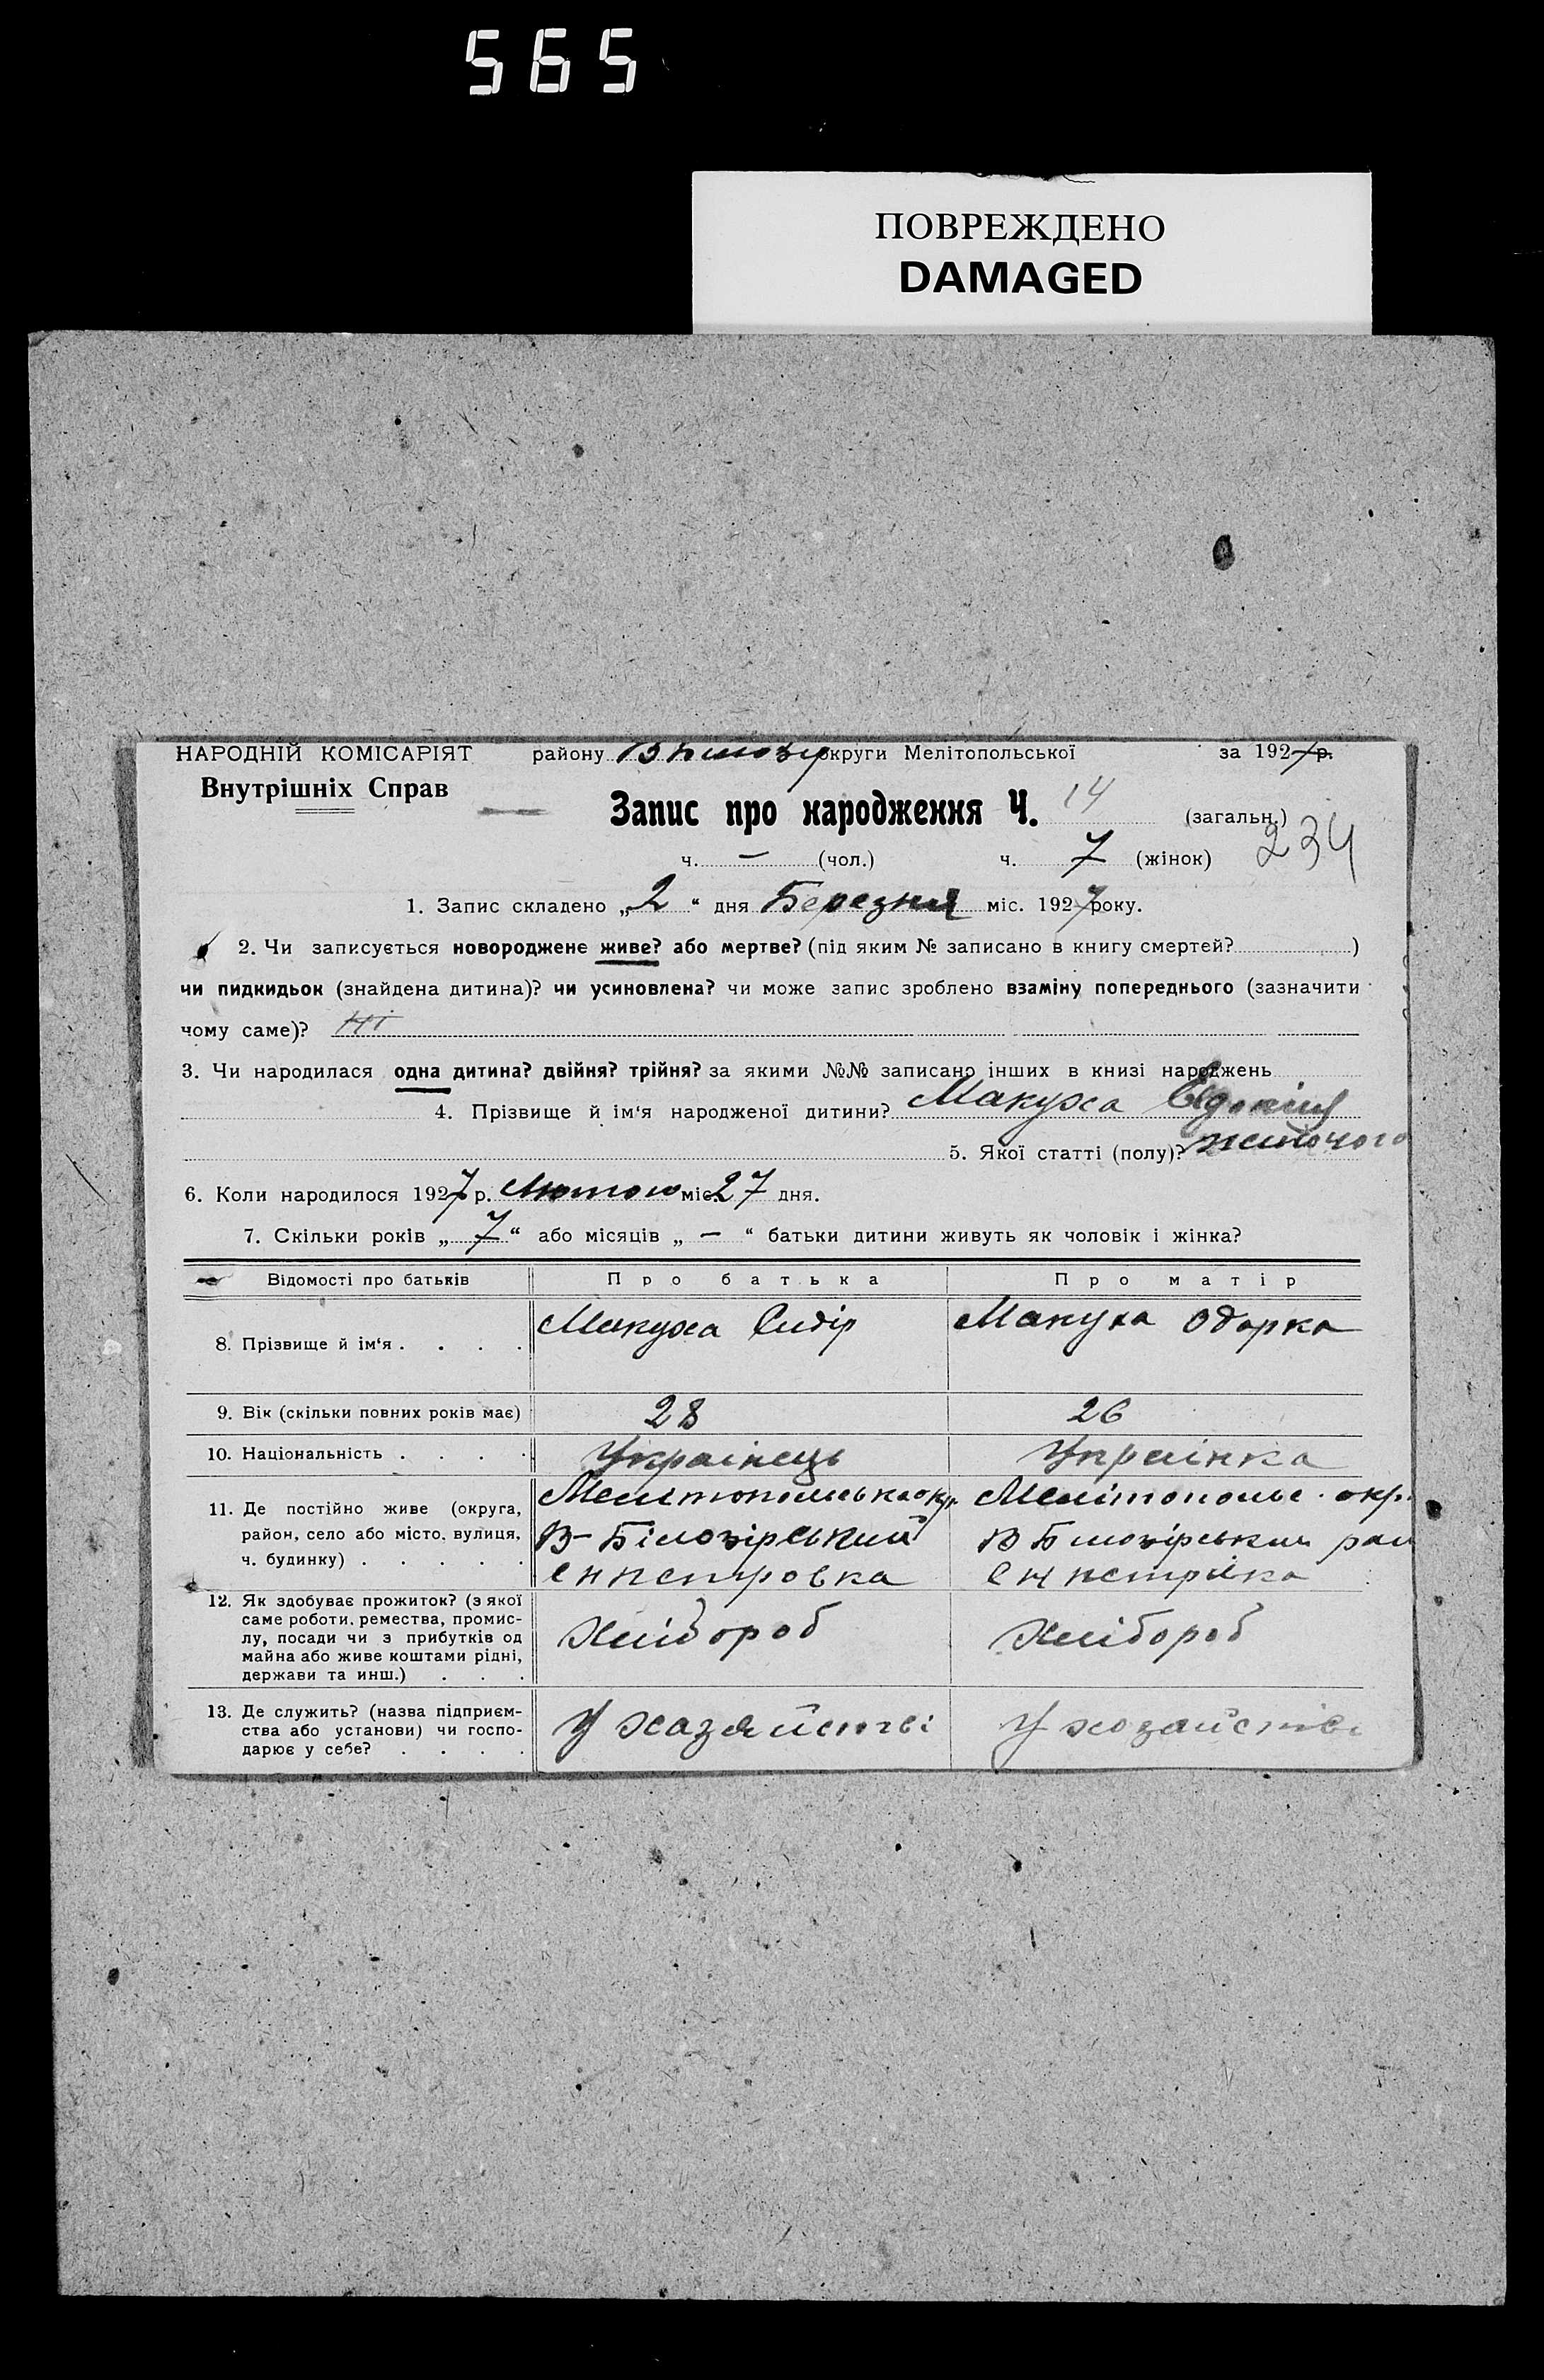 565
ПОВРЕЖДЕНО
DAMAGED
НАРОДНІЙ КОМІСАРІЯТ району В Білозір округи Мелітопольської за 1927 р.
Внутрішніх Справ
Запис про народження Ч. 14 (загальн.)
ч. — (чол.) ч. 7 (жінок) 234
1. Запис складено „2“ дня Березня міс. 1927 року.
2. Чи записується новороджене живе? або мертве? (під яким № записано в книгу смертей? )
чи пидкидьок (знайдена дитина)? чи усиновлена? чи може запис зроблено взаміну попереднього (зазначити
чому саме)? Ні
3. Чи народилася одна дитина? двійня? трійня? за якими №№ записано інших в книзі народжень
4. Прізвище й ім'я народженої дитини? Макуха Євдокія
5. Якої статті (полу)? жиночого
6. Коли народилося 1927 р. Лютого міс. 27 дня.
7. Скільки років „7“ або місяців „—“ батьки дитини живуть як чоловік і жінка?
Відомості про батьків Про батька Про матір
8. Прізвище й ім'я . . . . Макуха Сидір Макуха Одарка
9. Вік (скільки повних років має) 28 26
10. Національність . . . . Украінець Украінка
11. Де постійно живе (округа, Мелитопольська окр. Мелітопольс. окр.
район, село або місто, вулиця, В-Білозірський В Білозірський рай
ч. будинку) . . . . .
12. Як здобуває прожиток? (з якої
саме роботи, ремества, промис-
лу, посади чи з прибутків од Хлібороб Хлібороб
майна або живе коштами рідні,
держави та инш.) . . .
13. Де служить? (назва підприєм-
ства або установи) чи госпо- У хазяйстві У хозайстві
дарює у себе? . . . .